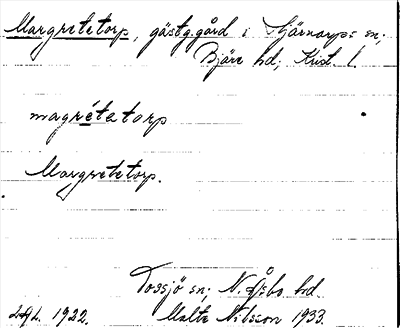 Margretetorp, gästg.gård i Hjärnarps sn;
Bjäre hd; Krist. l.
magrétatorp
Margretetorp.
Tossjö sn; N. Åsbo hd.
1922. Malte Nilsson 1933.